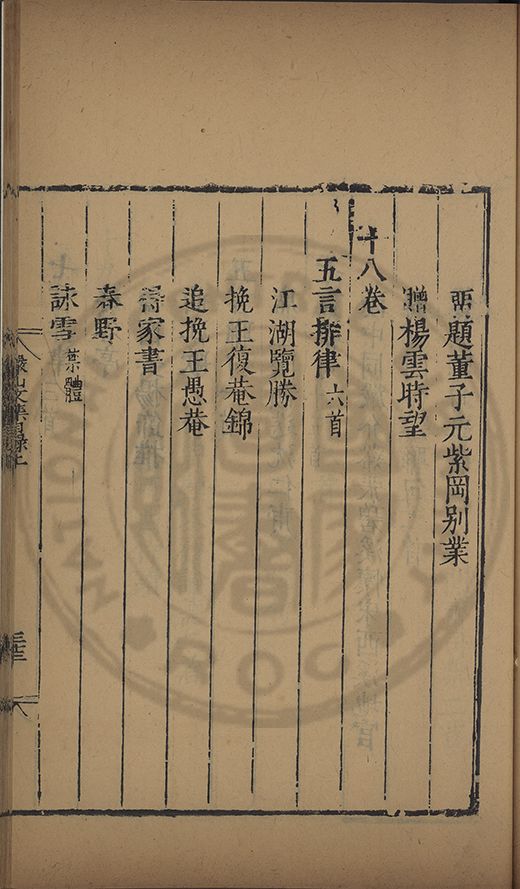 題董子元紫岡別業
贈楊雲時望
十八卷
五言排律 六首
江湖覽勝
挽王復菴錦
追挽王愚菴
得家書
春野
詠雪 禁體
儼山文集目錄上